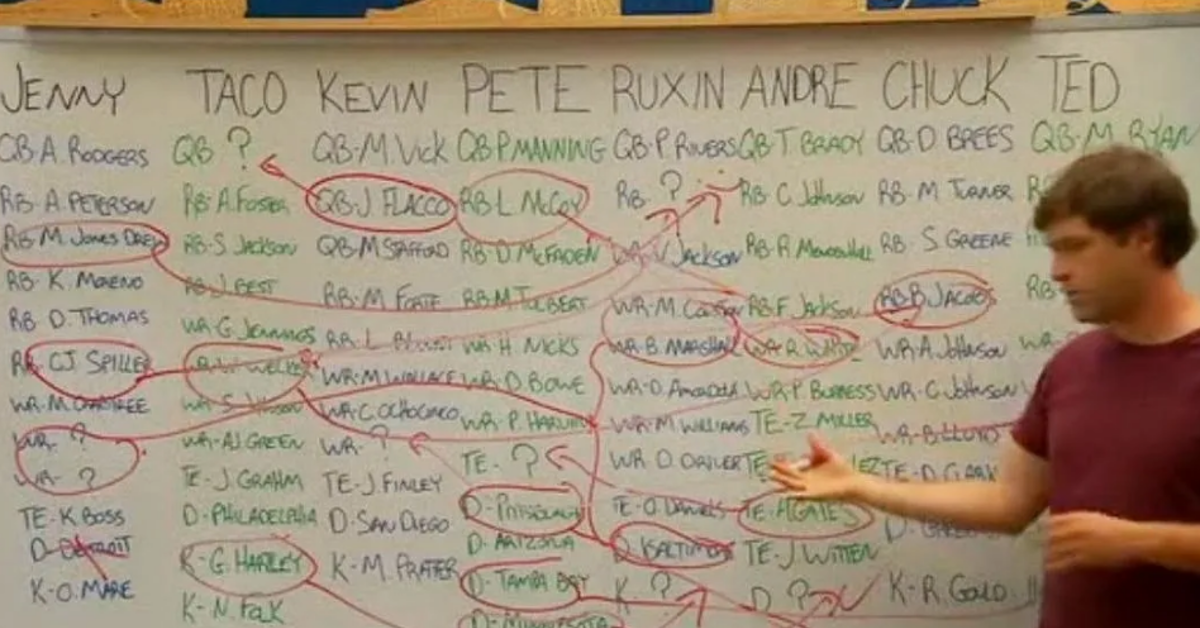 JENNY TACO KEVIN PETE RUXIN ANDRE CHUCK TED
QB-A. RODGERS QB ? QB-M. VICK QB-P MANNING QB-P. RIVERS QB-T BRADY QB-D BREES QB-M. RYAN
RB-A. PETERSON RB-A. FOSTER QB-J. FLACCO RB-L. McCOY RB-? RB-C JOHNSON RB-M TURNER
RB-M. JONES DREW RB-S. JACKSON QB-M STAFFORD RB-D. McFADEN V. JACKSON RB-R MENDENHALL RB-S. GREENE
RB-K. MORENO RB-J. BEST RB-M. FORTE RB-M. TOLBERT WR-M. RB-F. JACKSON RB-B. JACOBS
RB-D. THOMAS WR-G. JENNINGS RB-L. WR-H. NICKS WR-B. MARSHALL WR-R. WHITE WR-A. JOHNSON
RB-CJ. SPILLER WR-W. WELKER WR-M WALLACE WR-D. BOWE WR-D. WR-P. BURRESS WR-C. JOHNSON
WR-M. CRABTREE WR-S. WR-C. OCHOCINCO WR-P. HARVIN WR-M WILLIAMS TE-Z. MILLER WR-B. LLOYD
WR-? WR-AJ. GREEN WR-? TE-? WR-D. DRIVER TE EZ TE-D. CLARK
WR-? TE-J. GRAHAM TE-J. FINLEY D-PITTSBURGH TE-O. DANIELS TE-A. GATES
TE-K. BOSS D-PHILADELPHIA D-SAN DIEGO D-ARIZONA D-BALTIMORE TE-J. WITTEN
D-DETROIT K-G. HARTLEY K-M. PRATER D-TAMPA BAY K-? D ? K-R. GOULD
K-O. MARE K-N. FOLK D-MINNESOTA